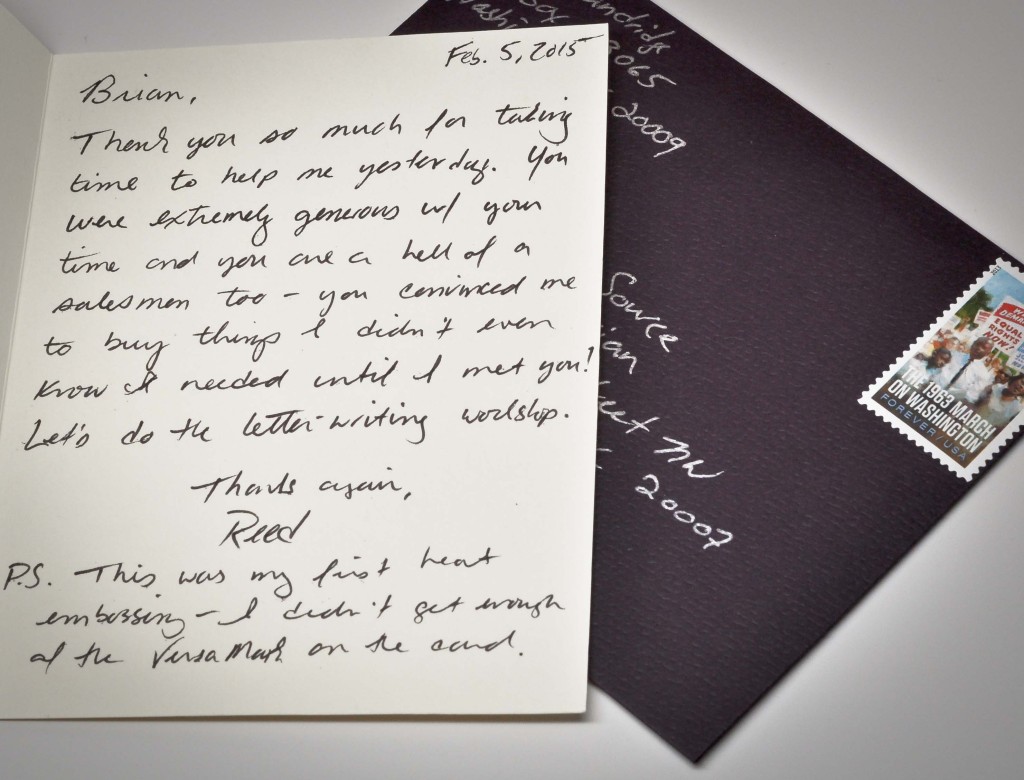 Feb. 5, 2015
Brian,
Thank you so much for taking
time to help me yesterday. You
were extremely generous w/ your
time and you are a hell of a
salesman too – you convinced me
to buy things I didn't even
know I needed until I met you!
Let's do the letter-writing workshop.
Thanks again,
Reed
P.S. This was my first heat
embossing – I didn't get enough
of the VersaMark on the card.
andridge
Box
Washi
3065
20009
Source
ian
eet NW
20007
EQUAL
RIGHTS
NOW!
THE 1963 MARCH
ON WASHINGTON
FOREVER / USA